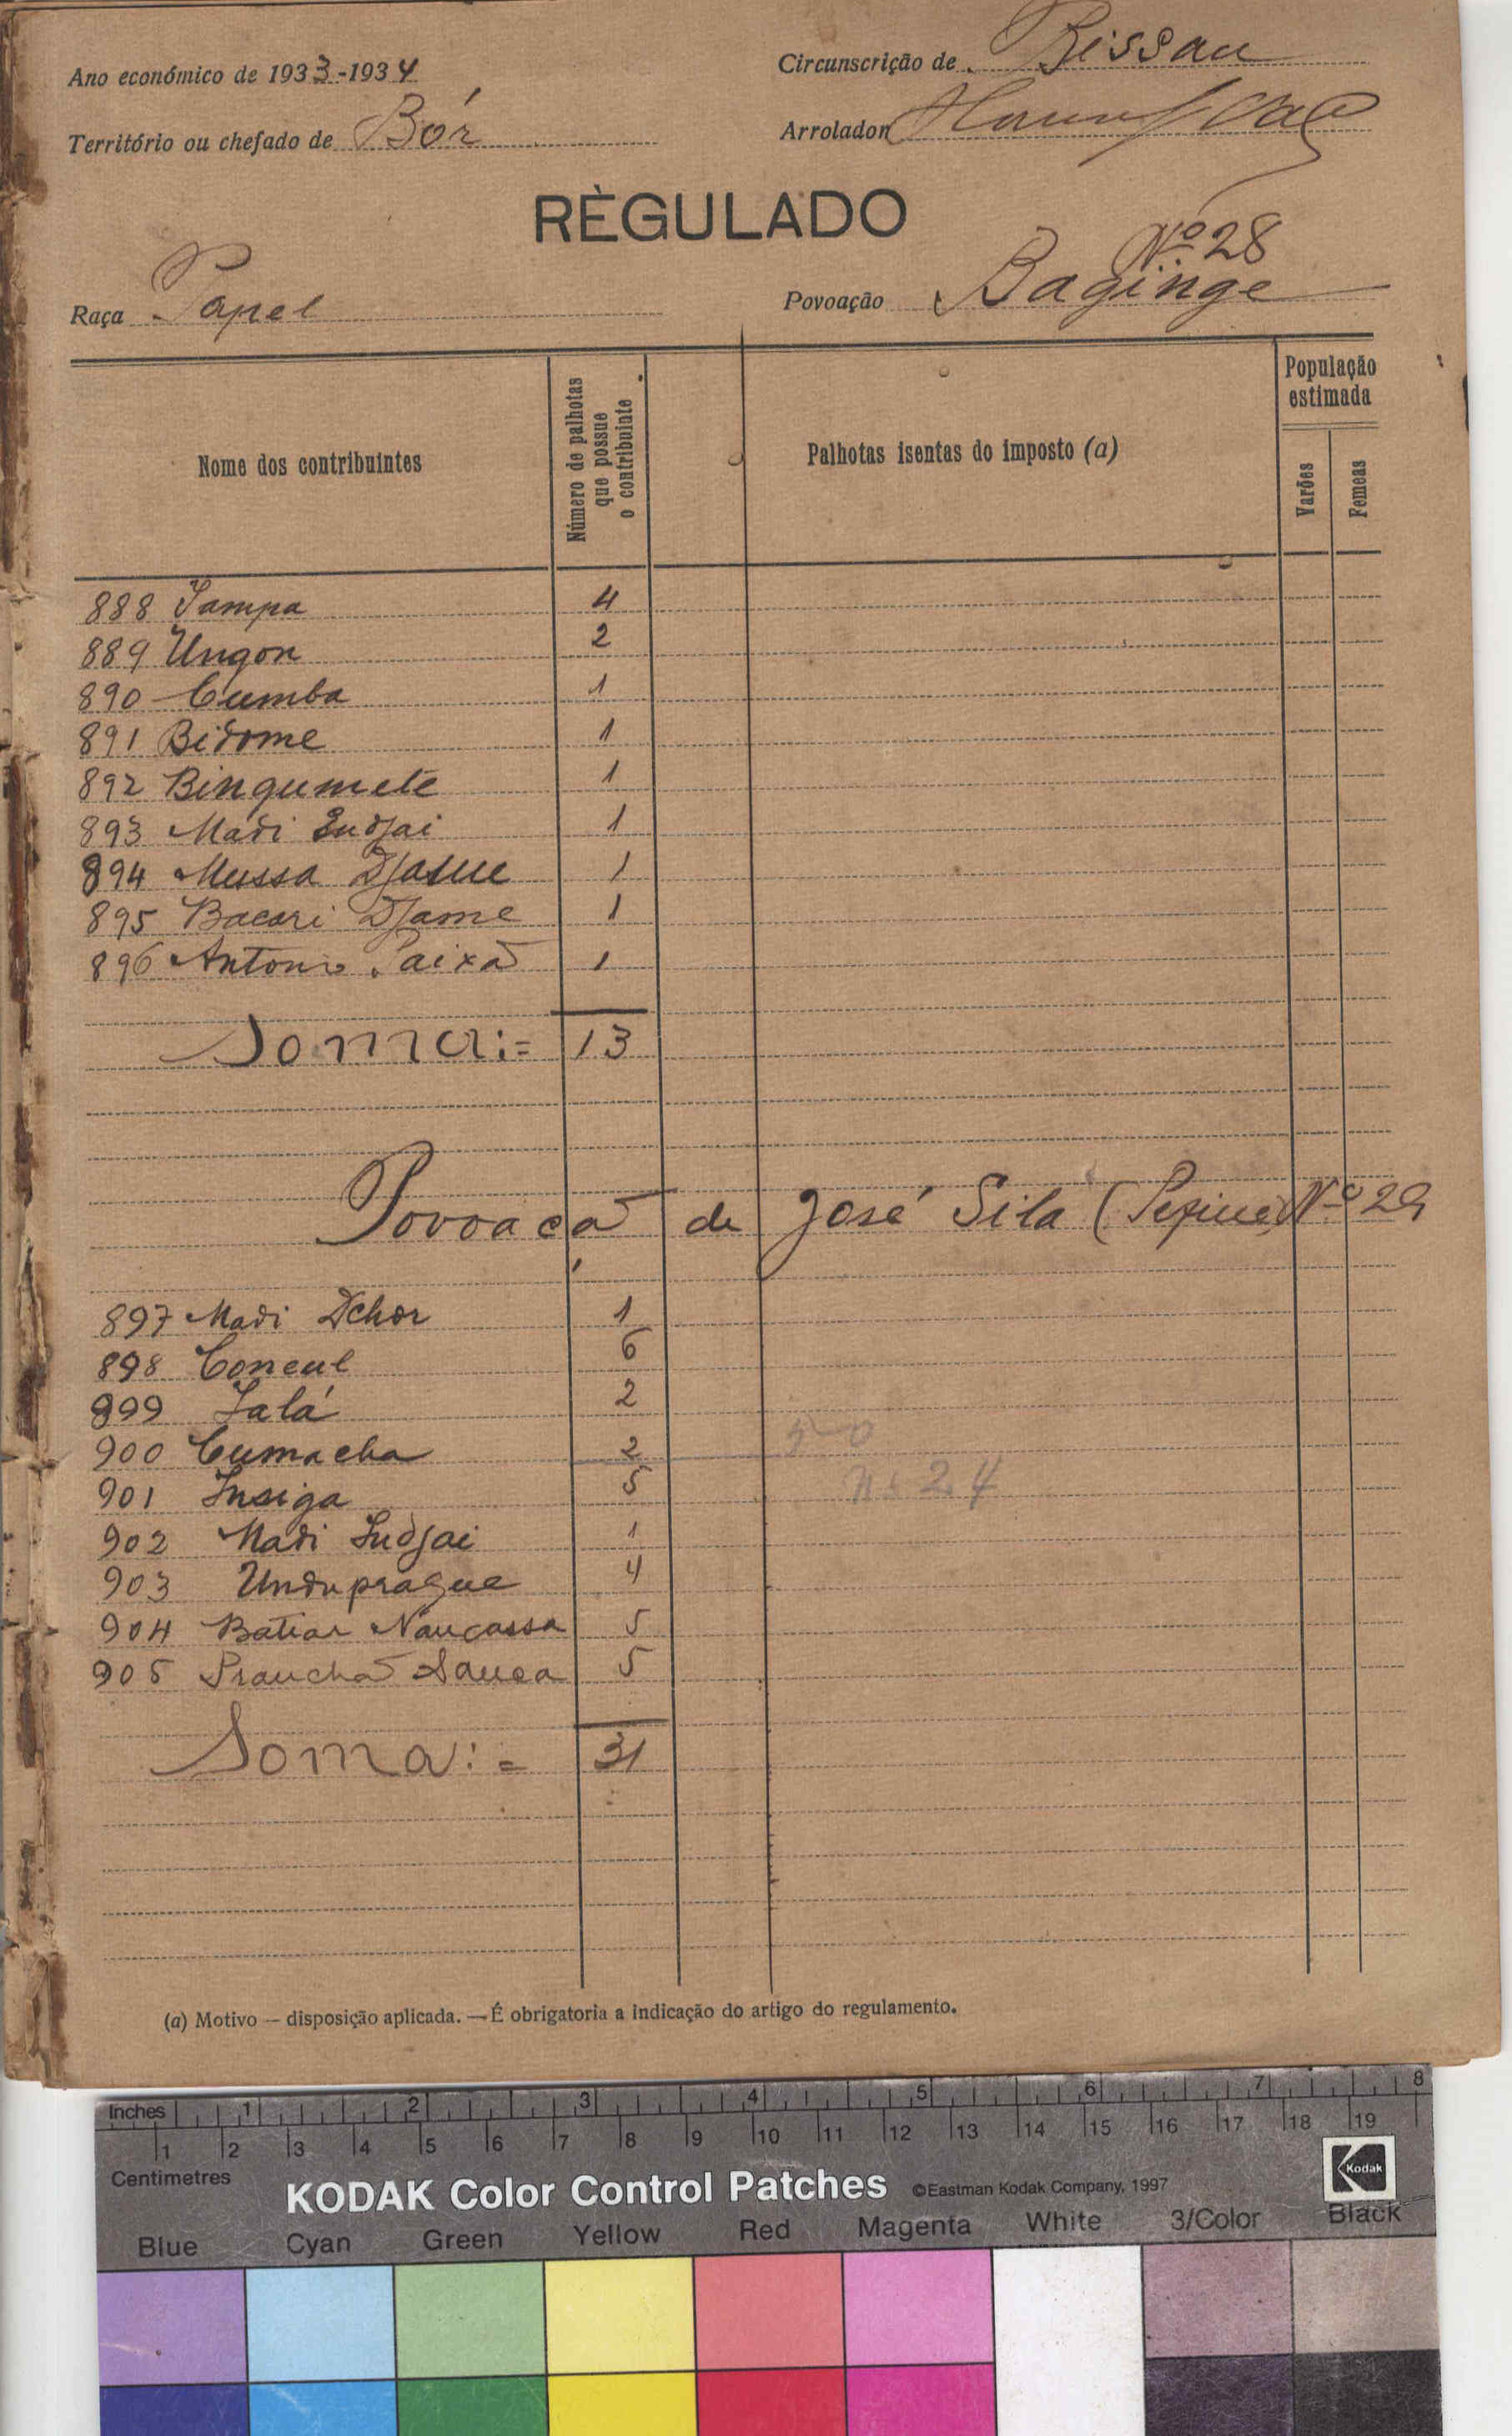 Ano económico de 1933-1934
Circunscrição de Bissau
Território ou chefado de Bór
Arrolador
RÈGULADO
Nº 28
Raça Papel
Povoação Baginge
Nome dos contribuintes
Número de palhotas que possue o contribuinte
Palhotas isentas do imposto (a)
População estimada
Varões
Femeas
888 Sampa 4
889 Ungon 2
890 Cumba 1
891 Bidome 1
892 Bingumete 1
893 Madi Indjai 1
894 Mussa 1
895 Bacari Djame 1
896 Antonio Paixã 1
Soma:= 13
Povoaçã de José Sila ( Nº 29
897 Madi Dchor 1
898 Concul 6
899 Ialá 2
900 Cumacha 2
901 Insiga 5
902 Madi Indjai 1
903 Unduprague 4
904 Batiar Naucassa 5
905 Prauchã Sauca 5
nº 24
Soma:= 31
(a) Motivo — disposição aplicada. — É obrigatoria a indicação do artigo do regulamento.
Inches 1 2 3 4 5 6 7 8
1 2 3 4 5 6 7 8 9 10 11 12 13 14 15 16 17 18 19
Centimetres
KODAK Color Control Patches ©Eastman Kodak Company, 1997
Kodak
Blue Cyan Green Yellow Red Magenta White 3/Color Black